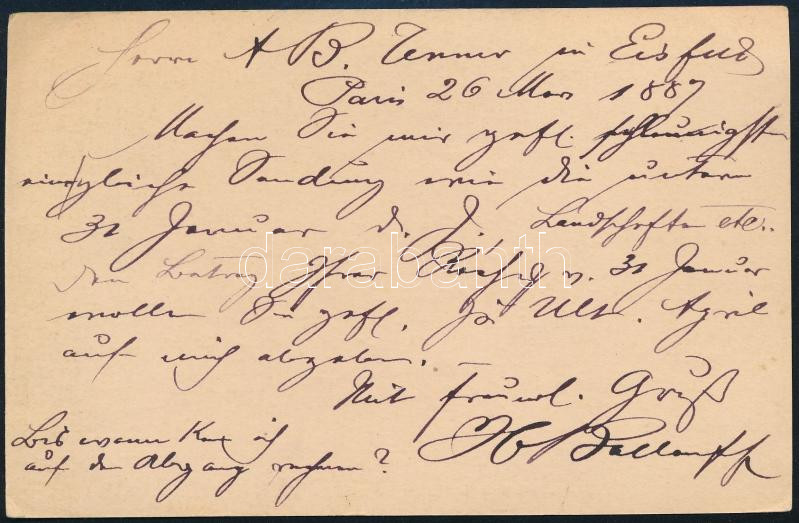 Herrn A B. Tenner in Eisfeld
Paris 26 Mars 1887
Machen Sie mir gefl. schleunigst
eine gleiche Sendung wie die unterm
31 Januar d. J. Landschaften etc.
den Betrag Ihrer v. 31 Januar
wollen Sie gefl. Ult. April
auf mich abgeben.
Mit freundl. Gruß
Bis wann kan ich
auf den Abgang rechnen?
darabanth